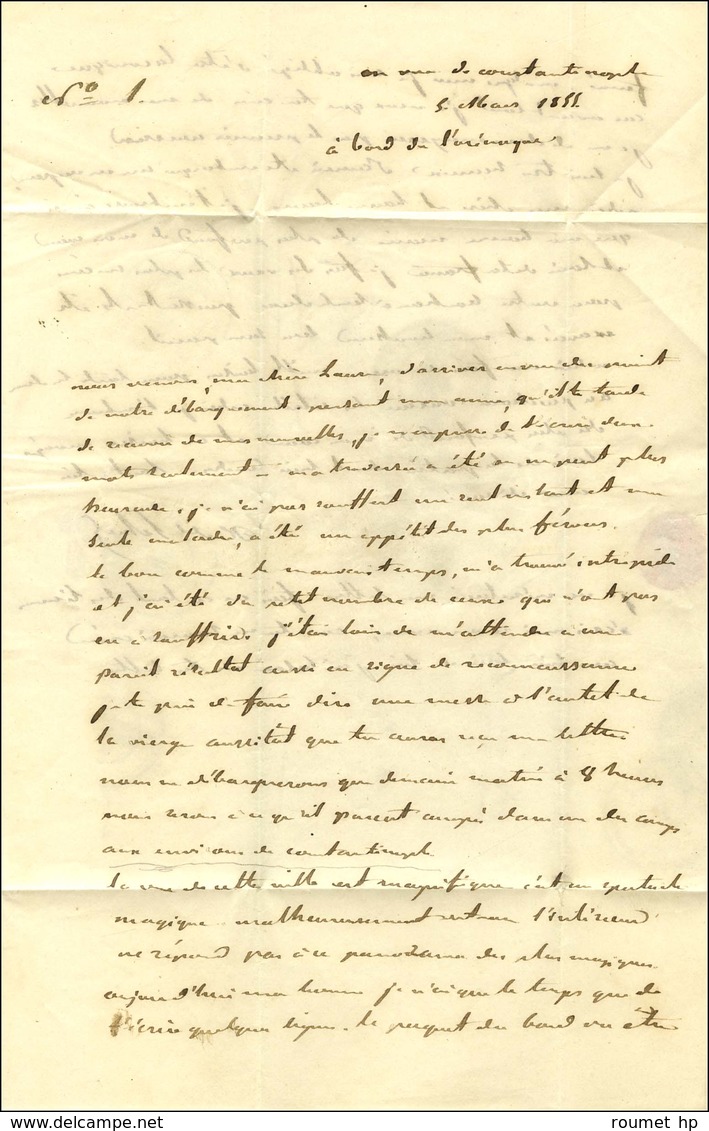 en vue de constantinople
No 1.
5 Mars 1855
à bord de l'orénoque
nous venons, ma chère Laure, d'arriver en vue du point
de notre débarquement. pensant mon amie, qu'il te tarde
de recevoir de mes nouvelles, je m'empresse de t'écrire deux
mots seulement – ma traversée a été on ne peut plus
heureuse, je n'ai pas souffert un seul instant et ma
seule maladie, a été un appétit des plus féroces.
le bon comme le mauvais temps, m'a trouvé intrépide
et j'ai été du petit nombre de ceux qui n'ont pas
eu à souffrir. j'étais loin de m'attendre à un
pareil résultat aussi en signe de reconnaissance
je te prie de faire dire une messe à l'autel de
la vierge aussitôt que tu auras reçu ma lettre
nous ne débarquerons que demain matin à 8 heures
nous serons à ce qu'il parait campés dans un des camps
aux environs de constantinople.
la vue de cette ville est magnifique c'est un spectacle
magique malheureusement l'intérieur
ne répond pas à ce panorama des plus magiques
aujourd'hui ma bonne je n'ai que le temps que de
t'écrire quelques lignes. le paquet du bord va être
roumet hp